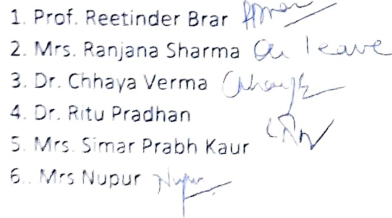 1. Prof. Reetinder Brar
2. Mrs. Ranjana Sharma On leave
3. Dr. Chhaya Verma Chhaya
4. Dr. Ritu Pradhan
5. Mrs. Simar Prabh Kaur
6.. Mrs Nupur Nupur